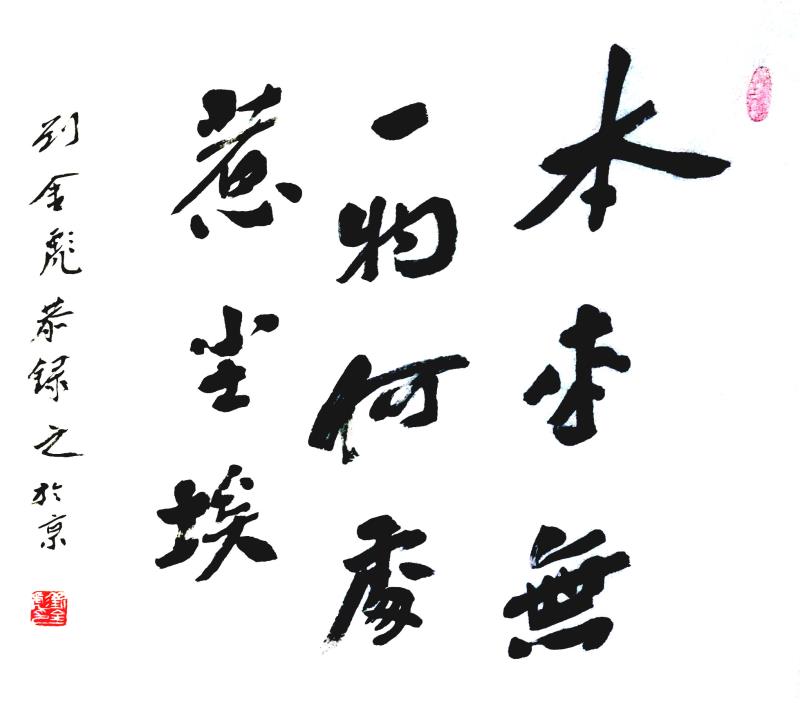 本来無
一物何處
惹尘埃
刘金彪恭録之於京